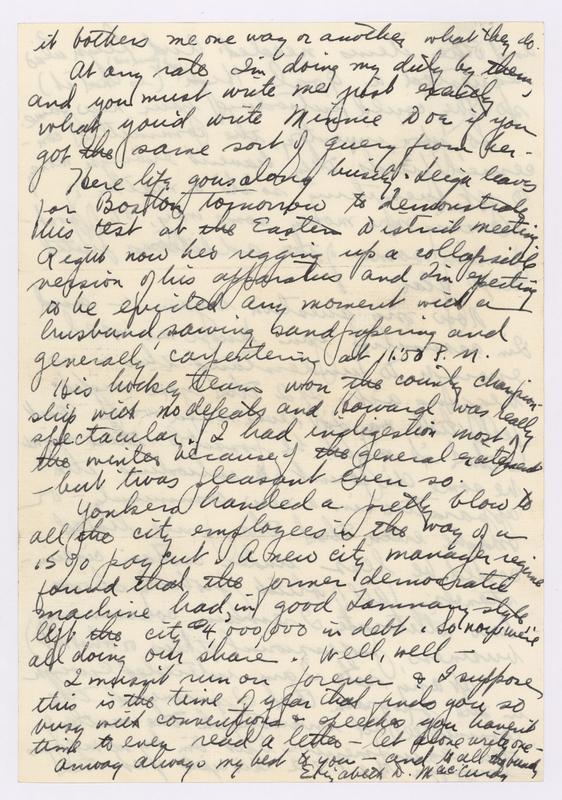 it bothers me one way or another what they do.
At any rate I'm doing my duty by them,
and you must write me just exactly
what you'd write Minnie Doe if you
got the same sort of query from her -
Here life goes along busily. Leigh leaves
for Boston tomorrow to demonstrate
his test at the Eastern District meeting.
Right now he's rigging up a collapsible
version of his apparatus and I'm expecting
to be evicted any moment with a
husband, sawing sandpapering and
generally carpentering at 11:50 P.M.
His hockey team won the county champion-
ship with no defeats and Howard was really
spectacular. I had indigestion most of
the winter because of the general excitement
- but twas pleasant even so.
Yonkers handed a pretty blow to
all the city employees in the way of a
15% pay cut. A new city manager regime
found that the former democratic
machine had, in good Tammany style
left the city $4,000,000 in debt. So now we're
all doing our share. Well, well -
I mustn't run on forever & I suppose
this is the time of year that finds you so
busy with conventions & speeches you haven't
time to even read a letter - let alone write one -
anway always my best to you - and to all the family
Elizabeth D. MacCurdy